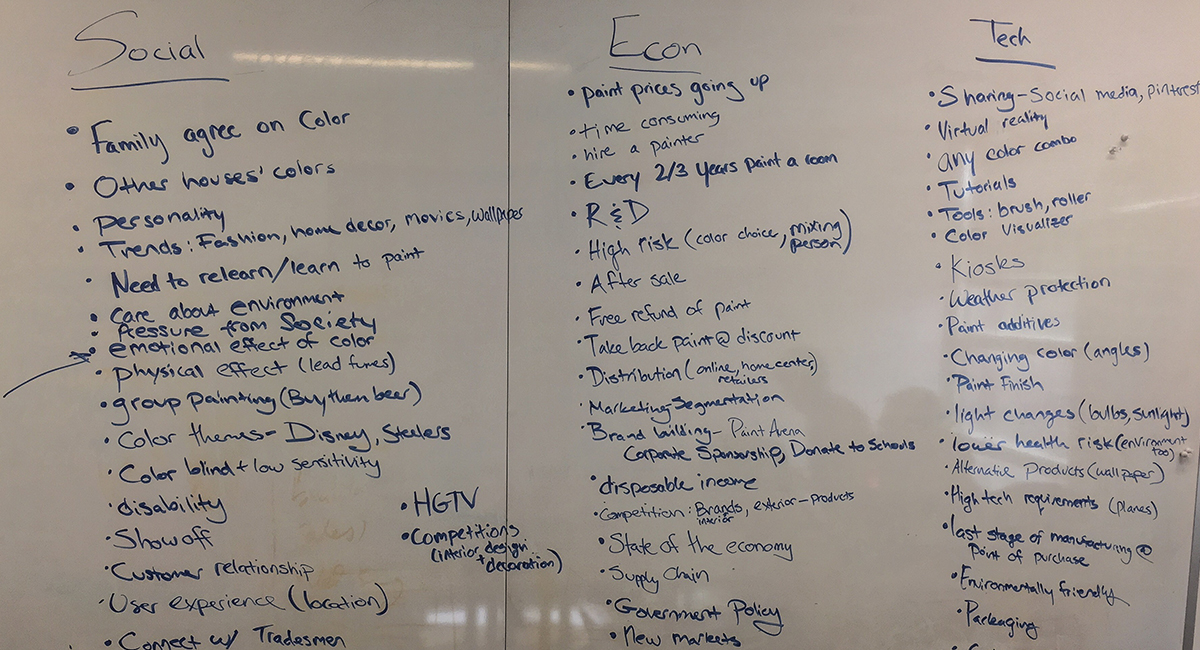 Social
• Family agree on Color
• Other houses' colors
• Personality
• Trends: Fashion, home decor, movies, wallpaper
• Need to relearn/learn to paint
• Care about environment
• Pressure from Society
• emotional effect of color
• physical effect (lead fumes)
• group painting (Buy them beer)
• Color themes- Disney, Steelers
• Color blind + low sensitivity
• disability
• Show off
• Customer relationship
• User experience (location)
• Connect w/ Tradesmen
• HGTV
• Competitions
(interior design
+ decoration)
Econ
• paint prices going up
• time consuming
• hire a painter
• Every 2/3 Years paint a room
• R & D
• High risk (color choice, mixing
person)
• After sale
• Free refund of paint
• Take back paint @ discount
• Distribution (online, home center,
retailers
• Marketing Segmentation
• Brand building- Paint Arena
Corporate Sponsorship, Donate to Schools
• disposable income
• Competition: Brands, exterior-products
interior
• State of the economy
• Supply Chain
• Government Policy
• New markets
Tech
• Sharing-Social media, pinterest
• Virtual reality
• any color combo
• Tutorials
• Tools: brush, roller
• Color Visualizer
• Kiosks
• Weather protection
• Paint additives
• Changing color (angles)
• Paint Finish
• light changes (bulbs, sunlight)
• lower health risk (environment
too)
• Alternative Products (wallpaper)
• High tech requirements (planes)
• last stage of manufacturing @
Point of purchase
• Environmentally friendly
• Packaging